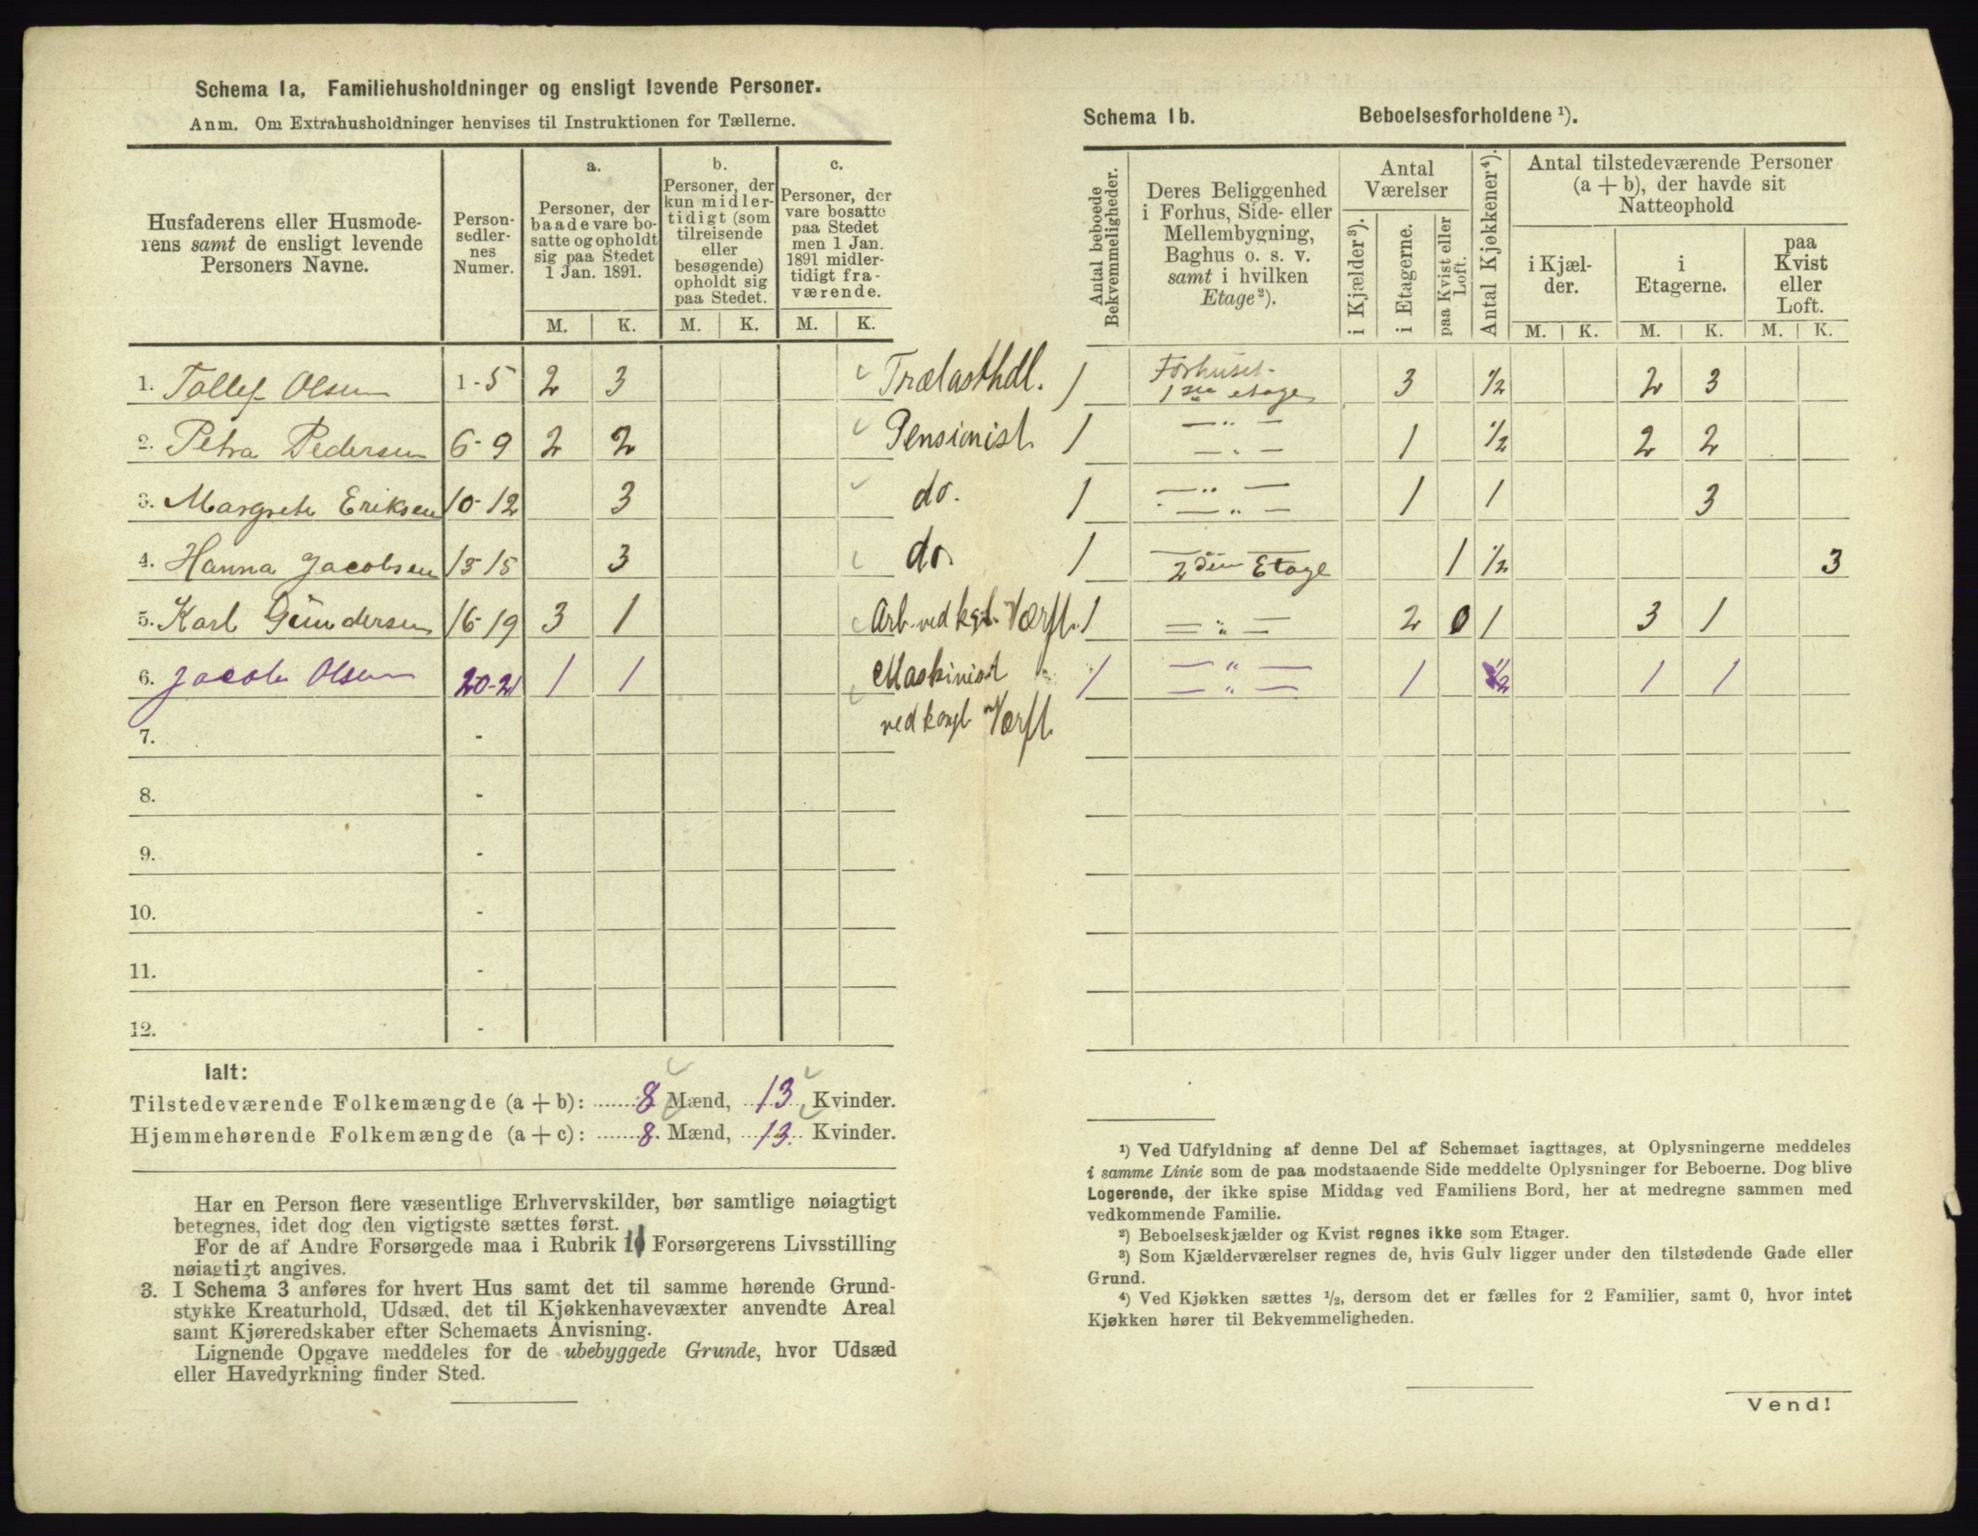 Schema 1a, Familiehusholdninger og ensligt levende Personer.
Anm. Om Extrahusholdninger henvises til Instruktionen for Tællerne.
Husfaderens eller Husmoderens samt de ensligt levende Personers Navne.
Personsedlernes Numer.
a. Personer, der baade vare bosatte og opholdt sig paa Stedet 1 Jan. 1891.
b. Personer, der kun midlertidigt (som tilreisende eller besøgende) opholdt sig paa Stedet.
c. Personer, der vare bosatte paa Stedet men 1 Jan. 1891 midlertidigt fraværende.
M. K. M. K. M. K.
1. Tollef Olsen 1-5 2 3 Trælasthdl.
2. Petra Pedersen 6-9 2 2 Pensionist
3. Margrete Eriksen 10-12 3 do.
4. Hanna Jacobsen 13-15 3 do.
5. Karl Gundersen 16-19 3 1 Arb. ved kgl. Værft.
6. Jacob Olsen 20-21 1 1 Maskinist
ved kongl. Værft.
7. -
8. -
9. -
10. -
11. -
12. -
Ialt:
Tilstedeværende Folkemængde (a + b): 8 Mænd, 13 Kvinder.
Hjemmehørende Folkemængde (a + c): 8 Mænd, 13 Kvinder.
Har en Person flere væsentlige Erhvervskilder, bør samtlige nøiagtigt
betegnes, idet dog den vigtigste sættes først.
For de af Andre Forsørgede maa i Rubrik 10 Forsørgerens Livsstilling
nøiagtigt angives.
3. I Schema 3 anføres for hvert Hus samt det til samme hørende Grund-
stykke Kreaturhold, Udsæd, det til Kjøkkenhavevæxter anvendte Areal
samt Kjøreredskaber efter Schemaets Anvisning.
Lignende Opgave meddeles for de ubebyggede Grunde, hvor Udsæd
eller Havedyrkning finder Sted.
Schema 1b. Beboelsesforholdene ¹).
Antal beboede Bekvemmeligheder.
Deres Beliggenhed i Forhus, Side- eller Mellembygning, Baghus o. s. v. samt i hvilken Etage²).
Antal Værelser
i Kjælder³).
i Etagerne.
paa Kvist eller Loft.
Antal Kjøkkener⁴).
Antal tilstedeværende Personer (a + b), der havde sit Natteophold
i Kjælder.
i Etagerne.
paa Kvist eller Loft.
M. K. M. K. M. K.
1 Forhuset 1ste etage 3 ½ 2 3
1 — " — — " — 1 ½ 2 2
1 — " — — " — 1 1 3
1 — " — 2den Etage 1 ½ 3
1 — " — 2 0 1 3 1
1 — " — — " — 1 ½ 1 1
¹) Ved Udfyldning af denne Del af Schemaet iagttages, at Oplysningerne meddeles
i samme Linie som de paa modstaaende Side meddelte Oplysninger for Beboerne. Dog blive
Logerende, der ikke spise Middag ved Familiens Bord, her at medregne sammen med
vedkommende Familie.
²) Beboelseskjælder og Kvist regnes ikke som Etager.
³) Som Kjælderværelser regnes de, hvis Gulv ligger under den tilstødende Gade eller
Grund.
⁴) Ved Kjøkken sættes ½, dersom det er fælles for 2 Familier, samt 0, hvor intet
Kjøkken hører til Bekvemmeligheden.
Vend!